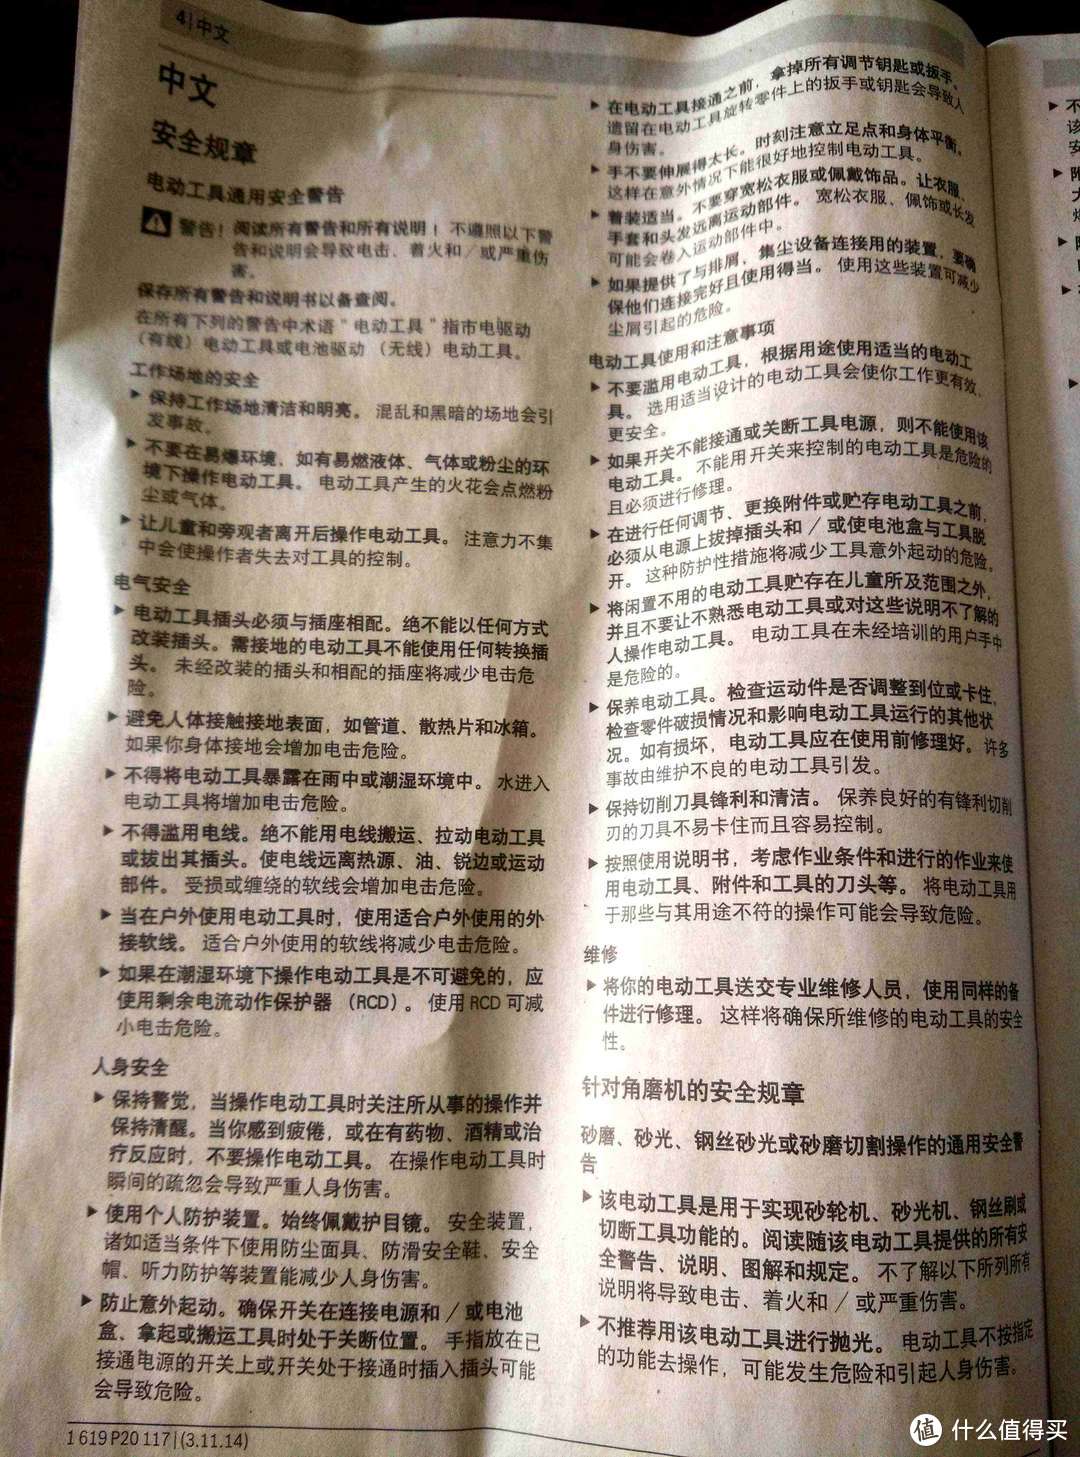 4|中文
中文
安全规章
电动工具通用安全警告
警告！阅读所有警告和所有说明！不遵照以下警
告和说明会导致电击、着火和／或严重伤
害。
保存所有警告和说明书以备查阅。
在所有下列的警告中术语＂电动工具＂指市电驱动
（有线）电动工具或电池驱动（无线）电动工具。
工作场地的安全
▶ 保持工作场地清洁和明亮。混乱和黑暗的场地会引
发事故。
▶ 不要在易爆环境，如有易燃液体、气体或粉尘的环
境下操作电动工具。电动工具产生的火花会点燃粉
尘或气体。
▶ 让儿童和旁观者离开后操作电动工具。注意力不集
中会使操作者失去对工具的控制。
电气安全
▶ 电动工具插头必须与插座相配。绝不能以任何方式
改装插头。需接地的电动工具不能使用任何转换插
头。未经改装的插头和相配的插座将减少电击危
险。
▶ 避免人体接触接地表面，如管道、散热片和冰箱。
如果你身体接地会增加电击危险。
▶ 不得将电动工具暴露在雨中或潮湿环境中。水进入
电动工具将增加电击危险。
▶ 不得滥用电线。绝不能用电线搬运、拉动电动工具
或拔出其插头。使电线远离热源、油、锐边或运动
部件。受损或缠绕的软线会增加电击危险。
▶ 当在户外使用电动工具时，使用适合户外使用的外
接软线。适合户外使用的软线将减少电击危险。
▶ 如果在潮湿环境下操作电动工具是不可避免的，应
使用剩余电流动作保护器（RCD）。使用 RCD 可减
小电击危险。
人身安全
▶ 保持警觉，当操作电动工具时关注所从事的操作并
保持清醒。当你感到疲倦，或在有药物、酒精或治
疗反应时，不要操作电动工具。在操作电动工具时
瞬间的疏忽会导致严重人身伤害。
▶ 使用个人防护装置。始终佩戴护目镜。安全装置，
诸如适当条件下使用防尘面具、防滑安全鞋、安全
帽、听力防护等装置能减少人身伤害。
▶ 防止意外起动。确保开关在连接电源和／或电池
盒、拿起或搬运工具时处于关断位置。手指放在已
接通电源的开关上或开关处于接通时插入插头可能
会导致危险。
1 619 P20 117|(3.11.14)
▶ 在电动工具接通之前，拿掉所有调节钥匙或扳手。
遗留在电动工具旋转零件上的扳手或钥匙会导致人
身伤害。
▶ 手不要伸展得太长。时刻注意立足点和身体平衡。
这样在意外情况下能很好地控制电动工具。
▶ 着装适当。不要穿宽松衣服或佩戴饰品。让衣服、
手套和头发远离运动部件。宽松衣服、佩饰或长发
可能会卷入运动部件中。
▶ 如果提供了与排屑，集尘设备连接用的装置，要确
保他们连接完好且使用得当。使用这些装置可减少
尘屑引起的危险。
电动工具使用和注意事项
▶ 不要滥用电动工具，根据用途使用适当的电动工
具。选用适当设计的电动工具会使你工作更有效、
更安全。
▶ 如果开关不能接通或关断工具电源，则不能使用该
电动工具。不能用开关来控制的电动工具是危险的
且必须进行修理。
▶ 在进行任何调节、更换附件或贮存电动工具之前，
必须从电源上拔掉插头和／或使电池盒与工具脱
开。这种防护性措施将减少工具意外起动的危险。
▶ 将闲置不用的电动工具贮存在儿童所及范围之外，
并且不要让不熟悉电动工具或对这些说明不了解的
人操作电动工具。电动工具在未经培训的用户手中
是危险的。
▶ 保养电动工具。检查运动件是否调整到位或卡住，
检查零件破损情况和影响电动工具运行的其他状
况。如有损坏，电动工具应在使用前修理好。许多
事故由维护不良的电动工具引发。
▶ 保持切削刀具锋利和清洁。保养良好的有锋利切削
刃的刀具不易卡住而且容易控制。
▶ 按照使用说明书，考虑作业条件和进行的作业来使
用电动工具、附件和工具的刀头等。将电动工具用
于那些与其用途不符的操作可能会导致危险。
维修
▶ 将你的电动工具送交专业维修人员，使用同样的备
件进行修理。这样将确保所维修的电动工具的安全
性。
针对角磨机的安全规章
砂磨、砂光、钢丝砂光或砂磨切割操作的通用安全警
告
▶ 该电动工具是用于实现砂轮机、砂光机、钢丝刷或
切断工具功能的。阅读随该电动工具提供的所有安
全警告、说明、图解和规定。不了解以下所列所有
说明将导致电击、着火和／或严重伤害。
▶ 不推荐用该电动工具进行抛光。电动工具不按指定
的功能去操作，可能发生危险和引起人身伤害。
值 什么值得买